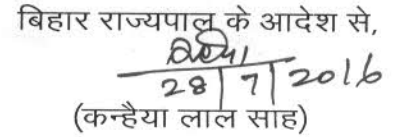 बिहार राज्यपाल के आदेश से,
28/7/2016
(कन्हैया लाल साह)